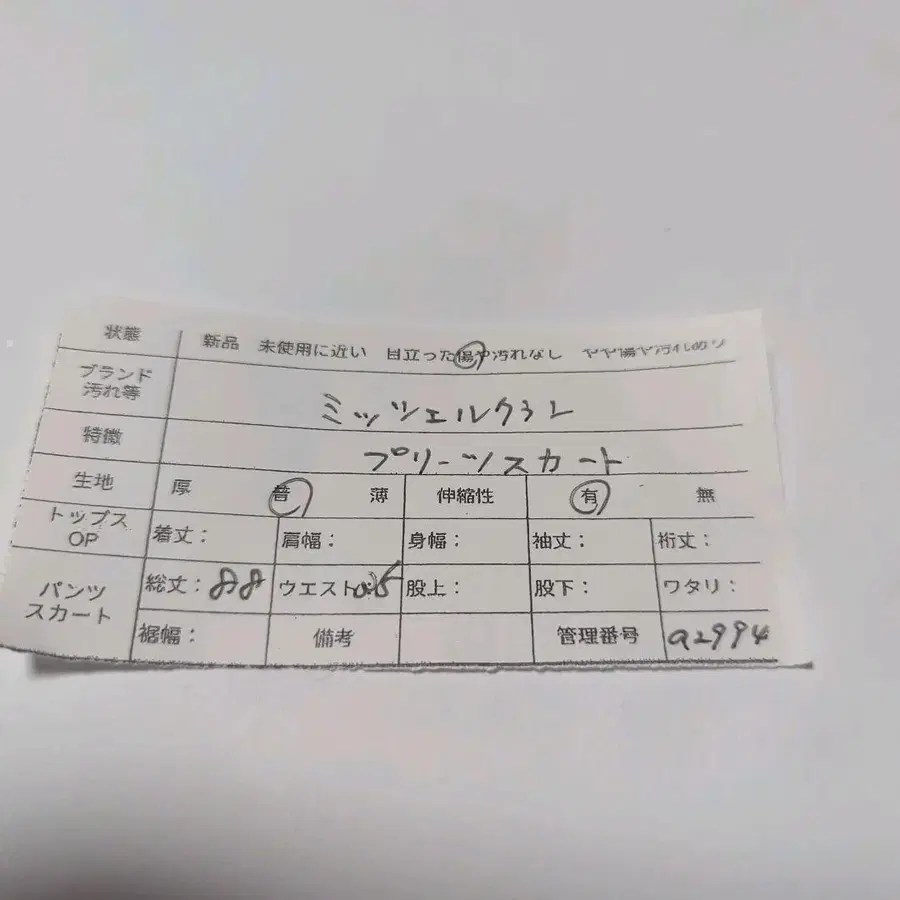 状態 新品 未使用に近い 目立った傷や汚れなし やや傷や汚れあり
ブランド
汚れ等
ミッシェルクラン
特徴 プリーツスカート
生地 厚 普 薄 伸縮性 有 無
トップス
OP
着丈: 肩幅: 身幅: 袖丈: 裄丈:
パンツ
スカート
総丈:88 ウエスト: 股上: 股下: ワタリ:
裾幅: 備考 管理番号 a2994